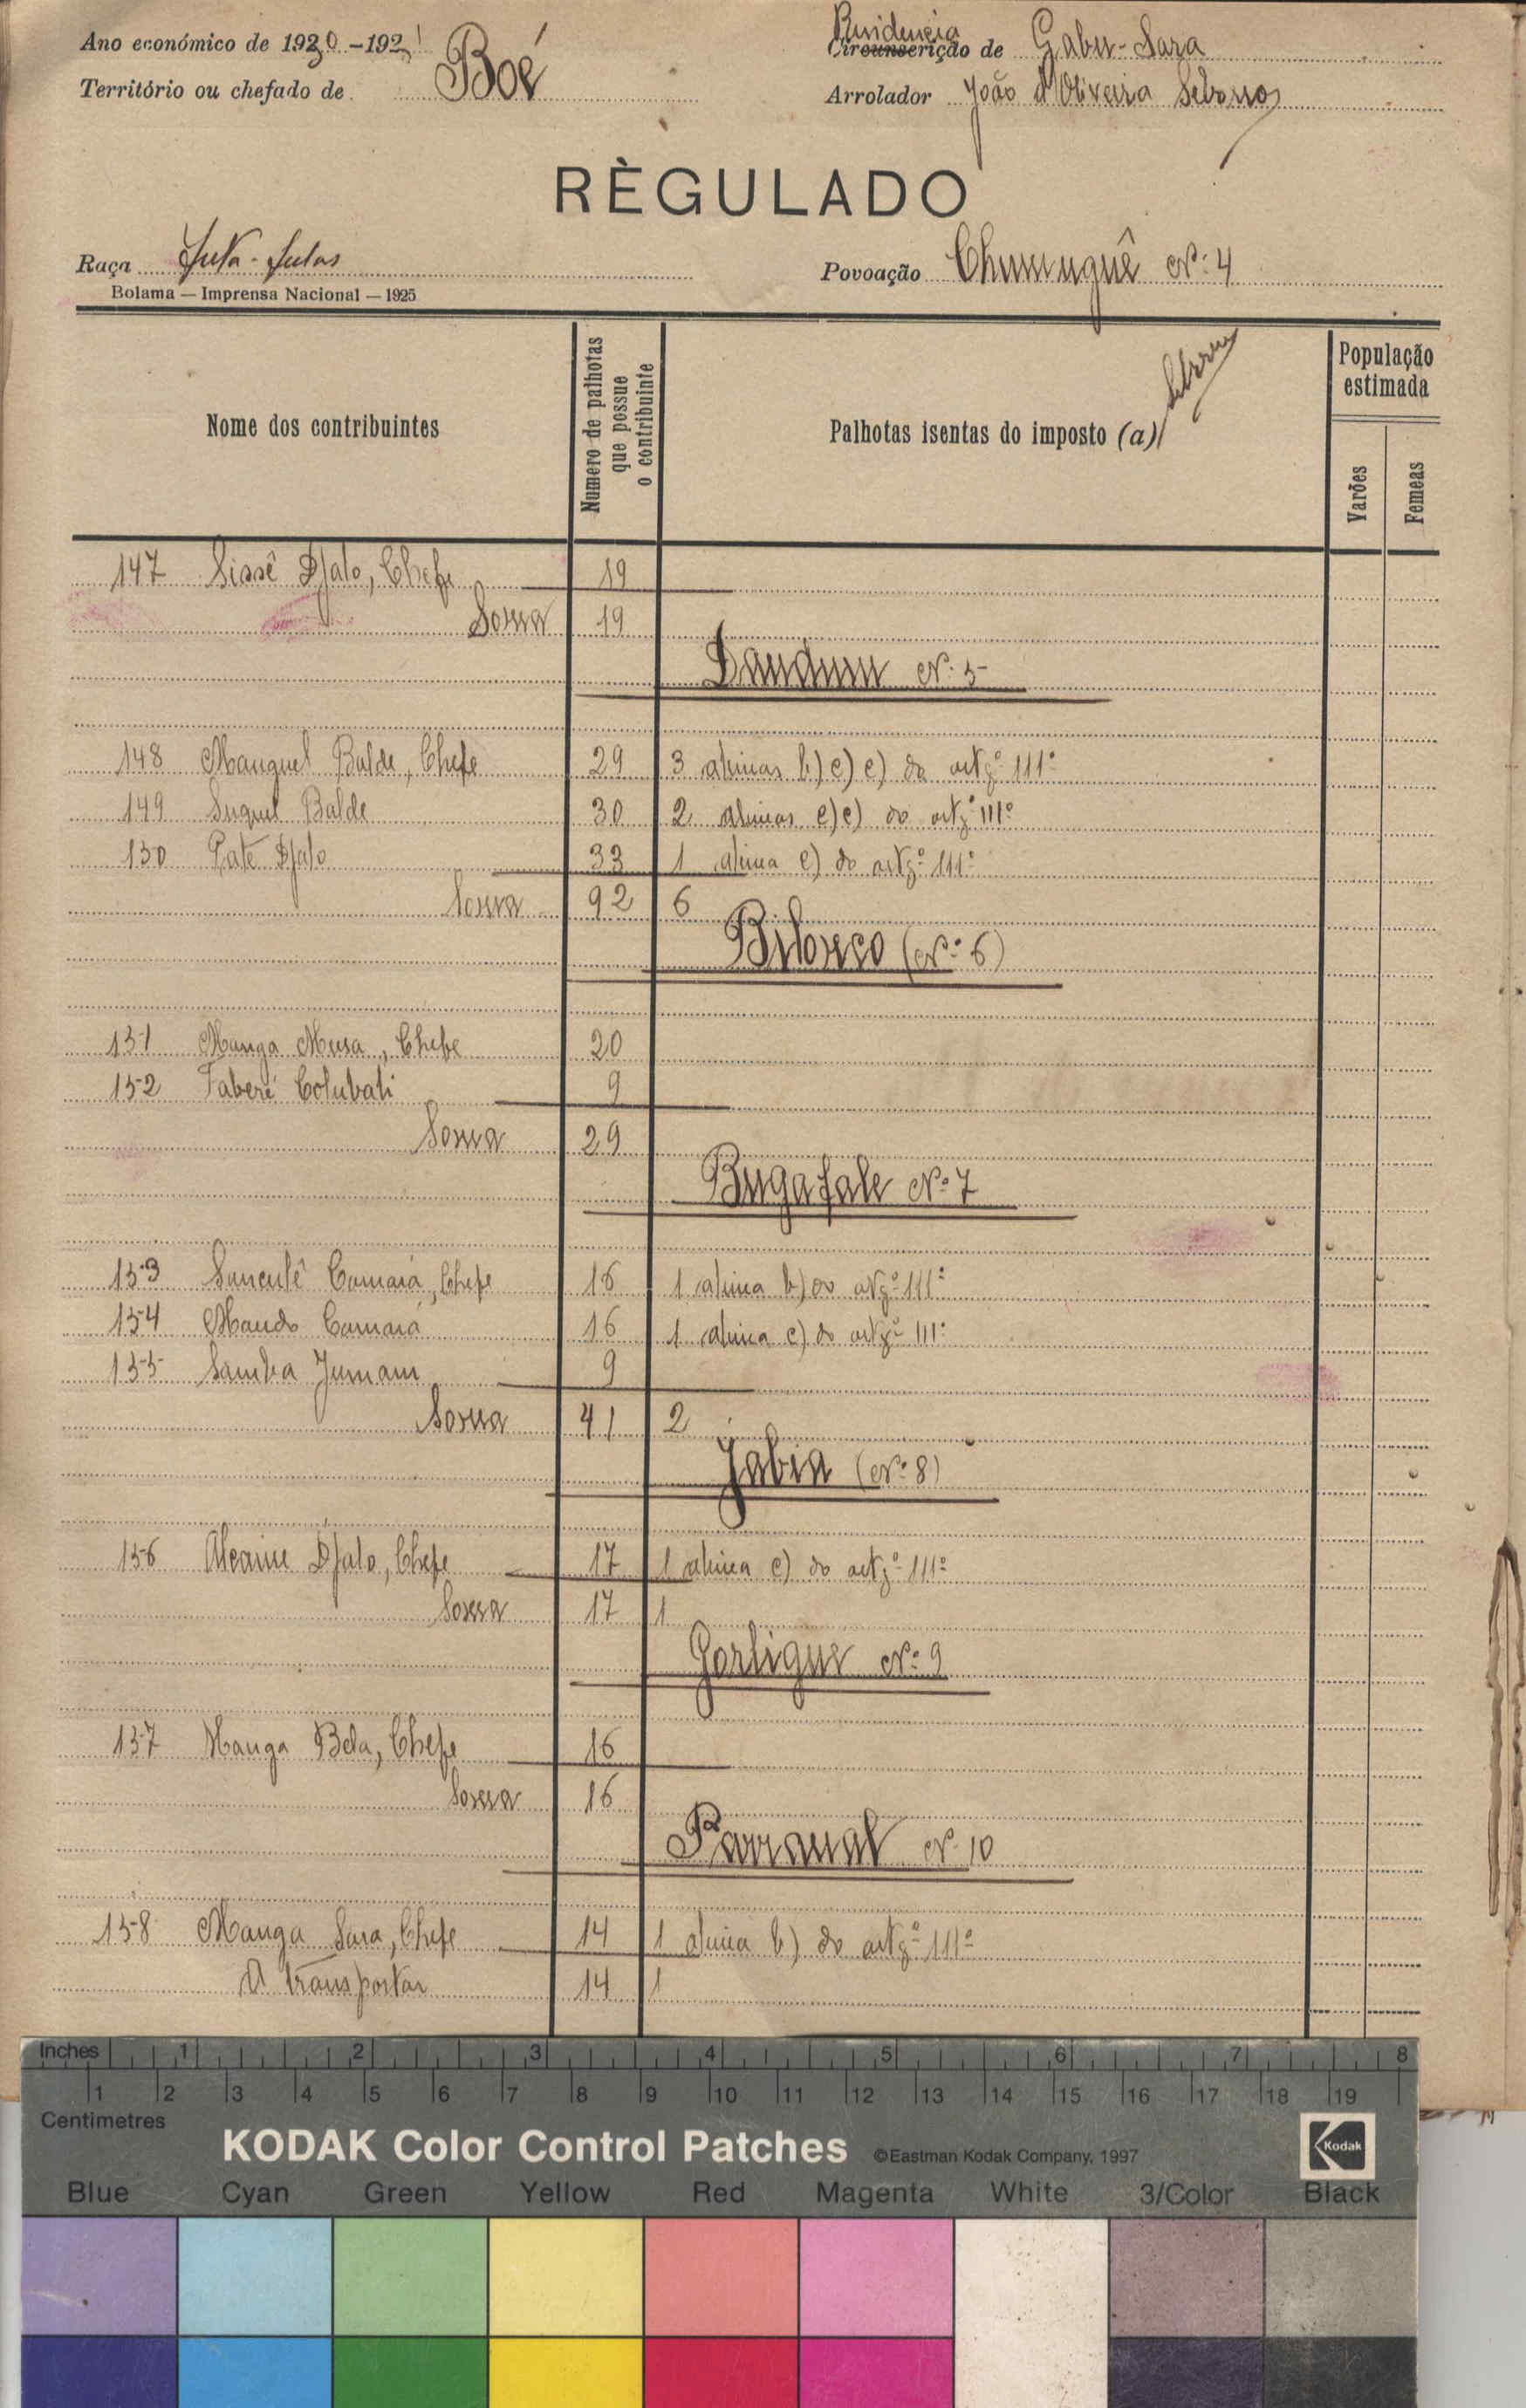 Ano económico de 1930-1931
Residencia
Circunscrição de Gabu-Sara
Território ou chefado de Boé
Arrolador João d'Oliveira
RÈGULADO
Raça Futa-fulas
Povoação Chumuguê Nº 4
Bolama — Imprensa Nacional — 1925
Nome dos contribuintes
Numero de palhotas que possue o contribuinte
Palhotas isentas do imposto (a)
População estimada
Varões
Femeas
147 Sissê Djalo, Chefe 19
Soma 19
Dandum Nº 5
148 Manguel Balde, Chefe 29 3 alineas b) c) e) do artgº 111º
149 Suquel Balde 30 2 alineas e) e) do artgº 111º
150 Pate Djalo 33 1 alinea e) do artgº 111º
Soma 92 6
(Nº 6)
151 Manga Musa, Chefe 20
152 Faberé Colubali 9
Soma 29
Bugafale Nº 7
153 Sunculê Camará, Chefe 16 1 alinea b) do artgº 111º
154 Mando Camará 16 1 alinea e) do artgº 111º
155 Samba Jumam 9
Soma 41 2
Jabia (Nº 8)
156 Alcaine Djalo, Chefe 17 1 alinea e) do artgº 111º
Soma 17 1
Gorligue Nº 9
157 Manga Bela, Chefe 16
Soma 16
Parranal Nº 10
158 Manga Sara, Chefe 14 1 alinea b) do artgº 111º
A transportar 14 1
Inches 1 2 3 4 5 6 7 8
1 2 3 4 5 6 7 8 9 10 11 12 13 14 15 16 17 18 19
Centimetres
KODAK Color Control Patches ©Eastman Kodak Company, 1997 Kodak
Blue Cyan Green Yellow Red Magenta White 3/Color Black